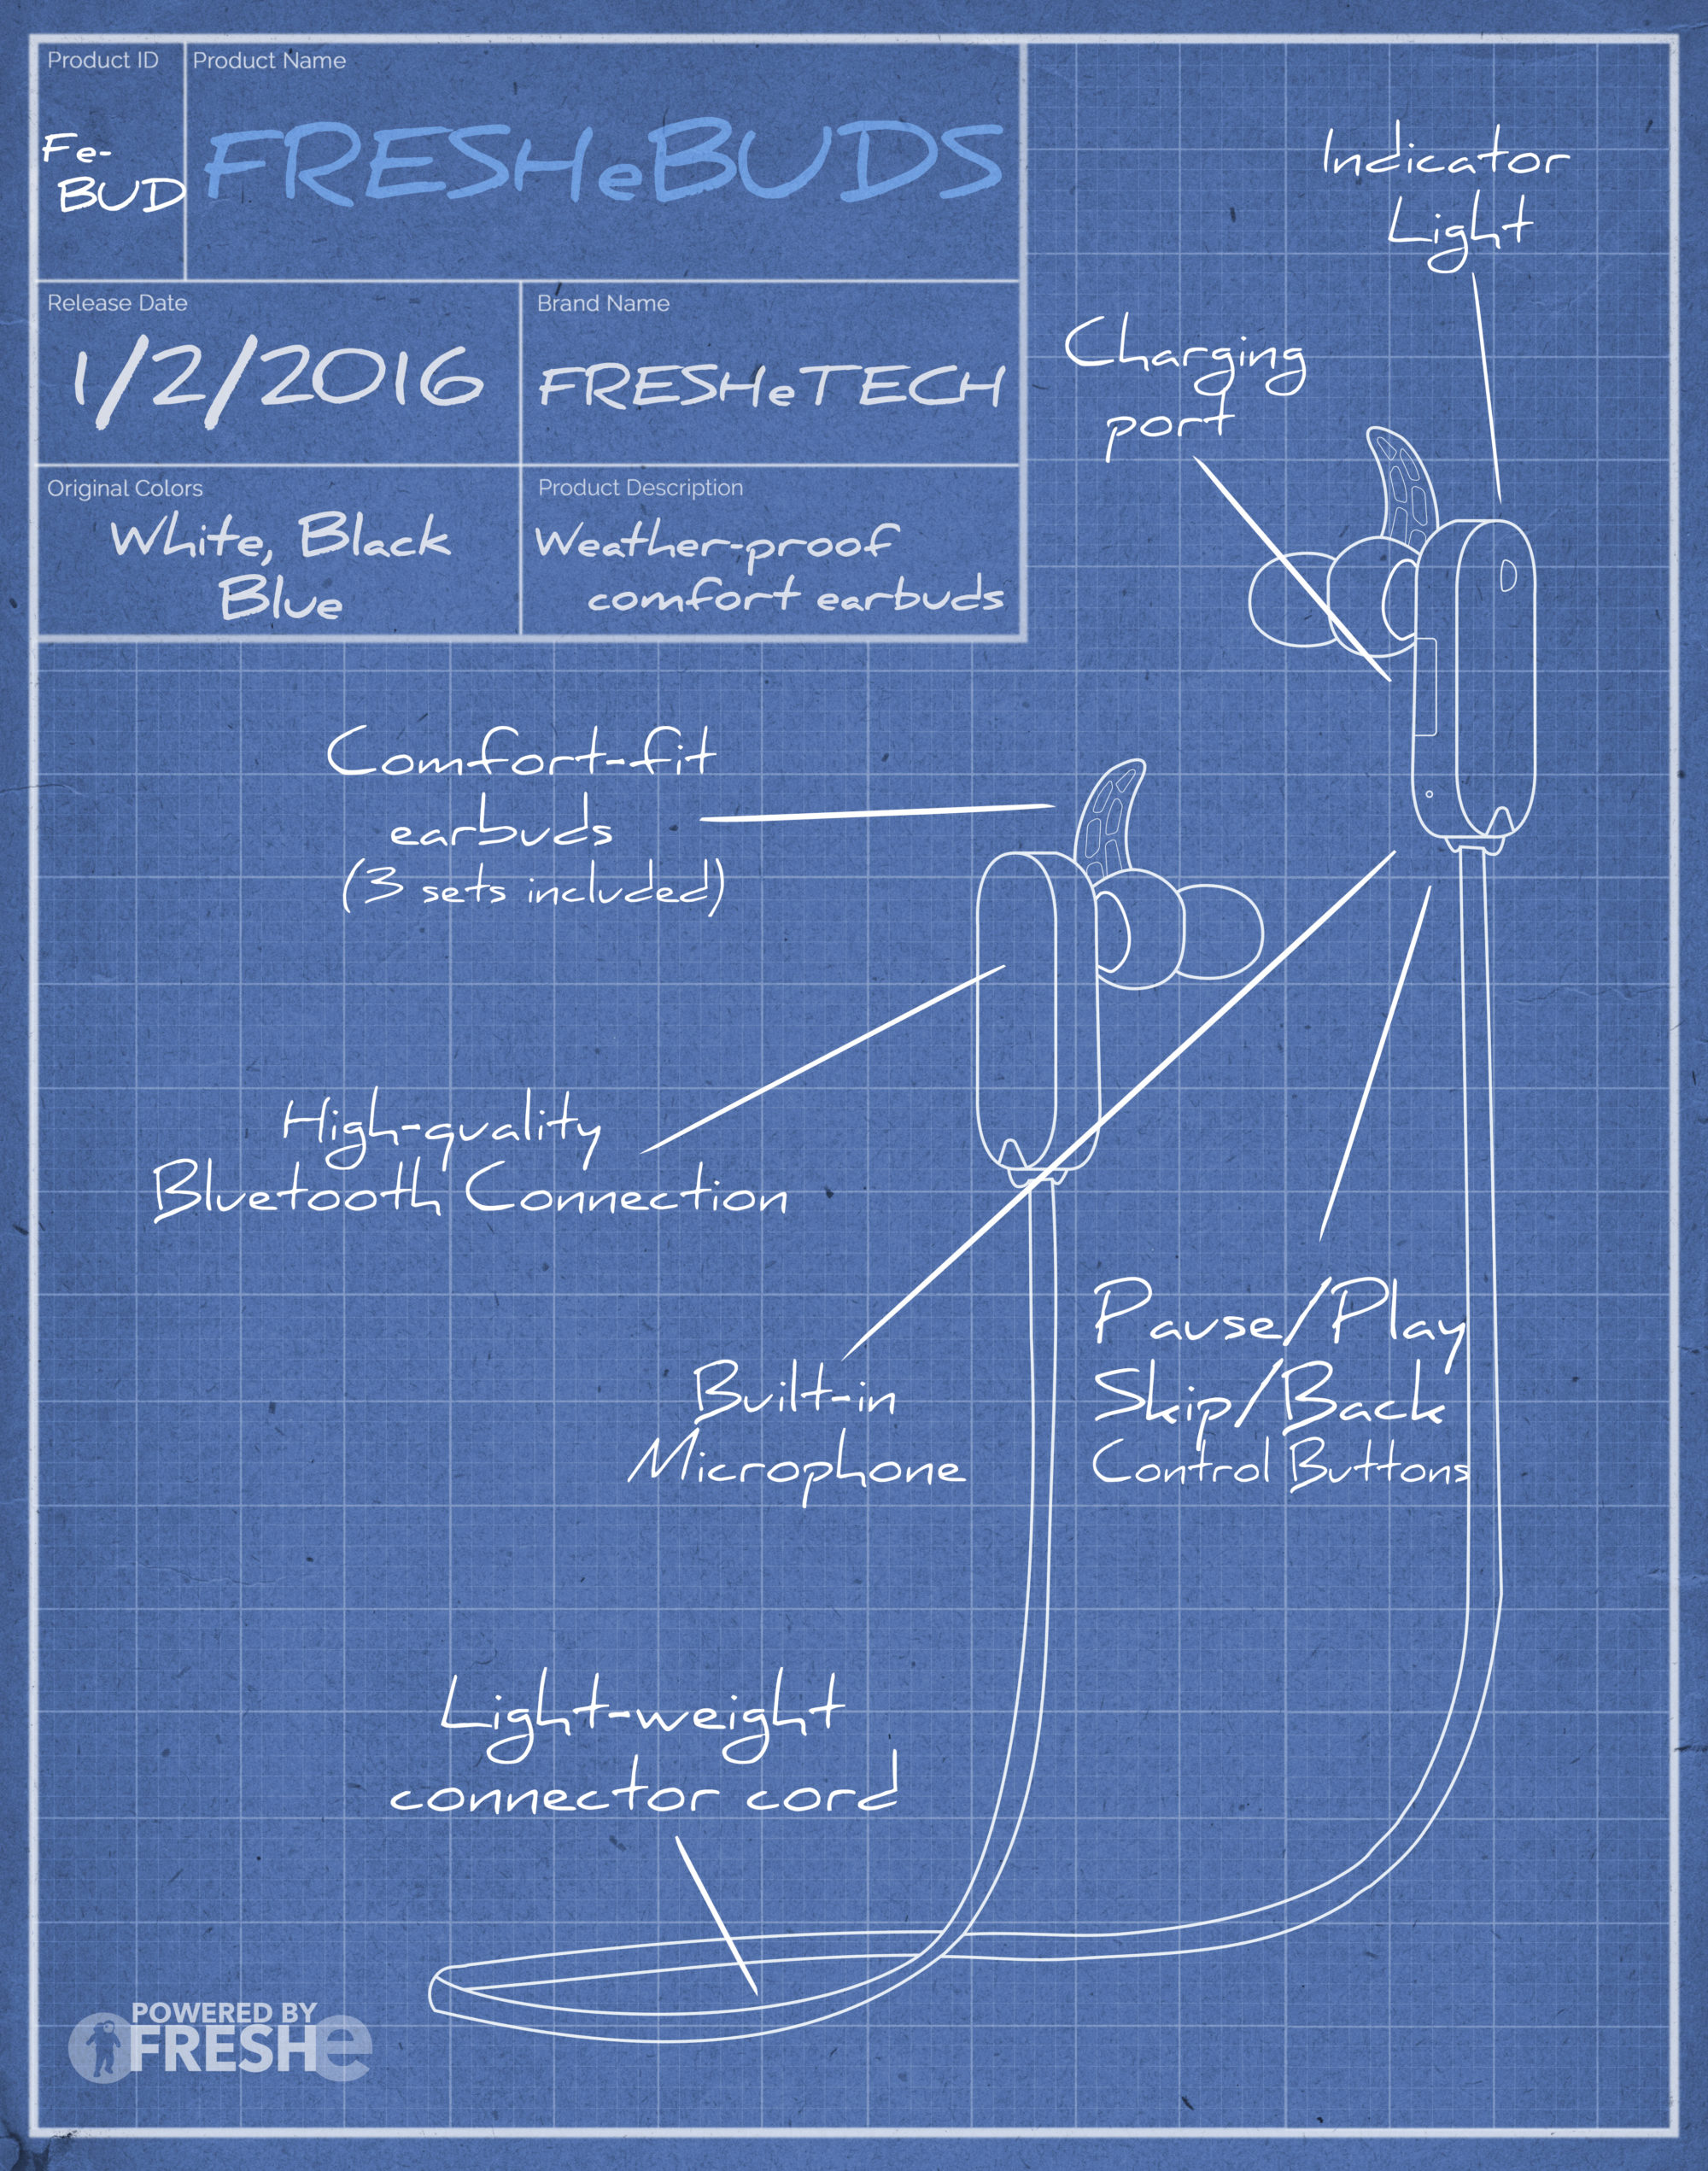 Product ID
Fe-
BUD
Product Name
FRESHeBUDS
Release Date
1/2/2016
Brand Name
FRESHeTECH
Original Colors
White, Black
Blue
Product Description
Weather-proof
comfort earbuds
Indicator
Light
Charging
port
Comfort-fit
earbuds
(3 sets included)
High-quality
Bluetooth Connection
Built-in
Microphone
Pause/Play
Skip/Back
Control Buttons
Light-weight
connector cord
POWERED BY
FRESHe